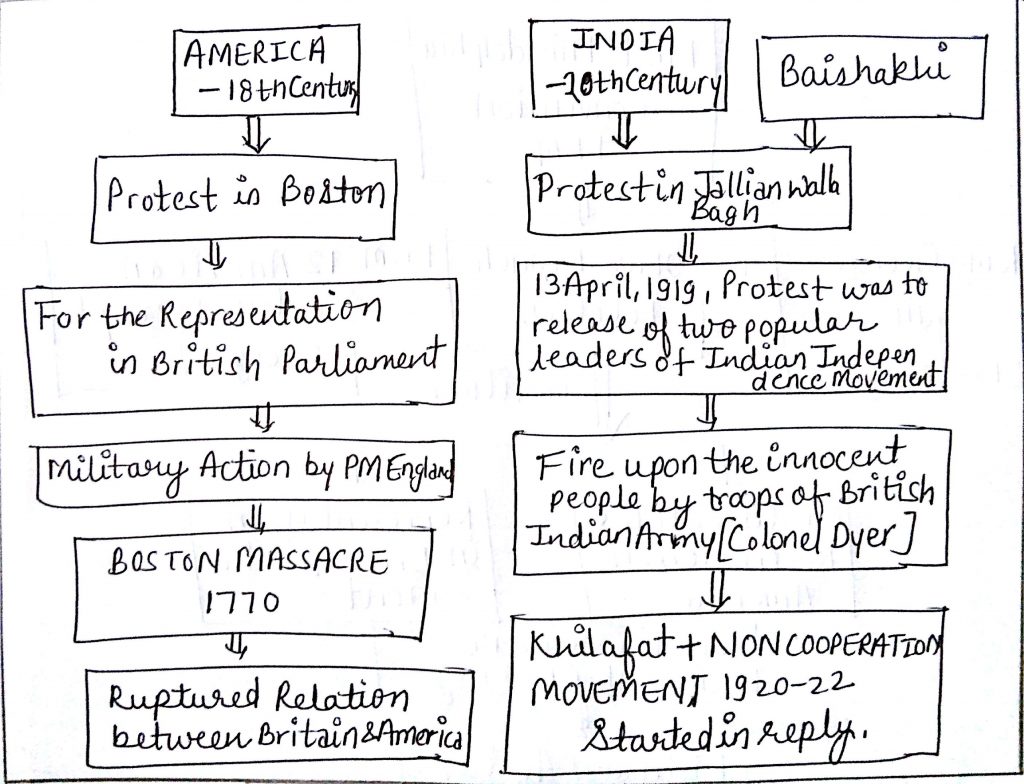 AMERICA
- 18thCentury
Protest in Boston
For the Representation
in British Parliament
Military Action by PM England
BOSTON MASSACRE
1770
Ruptured Relation
between Britain & America
INDIA
- 20thCentury
Baishakhi
Protest in Jallianwalla
Bagh
13 April, 1919, Protest was to
release of two popular
leaders of Indian Indepen
dence Movement
Fire upon the innocent
people by troops of British
Indian Army [Colonel Dyer]
Khilafat + NONCOOPERATION
MOVEMENT, 1920-22
Started in reply.